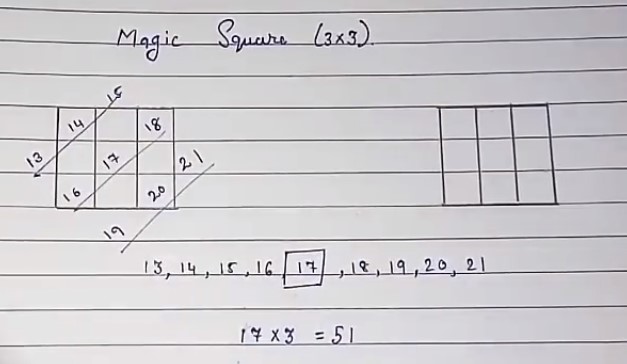 Magic Square (3x3).
15
14 18
13 17 21
16 20
19
13, 14, 15, 16 17, 18, 19, 20, 21
17 x 3 = 51